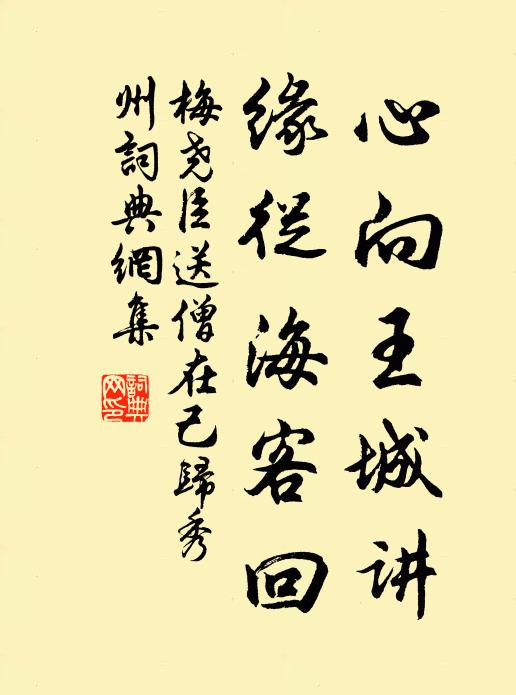 心向王城讲
缘從海客回
梅尧臣送僧在己歸秀
州詞典網集
詞典
网印